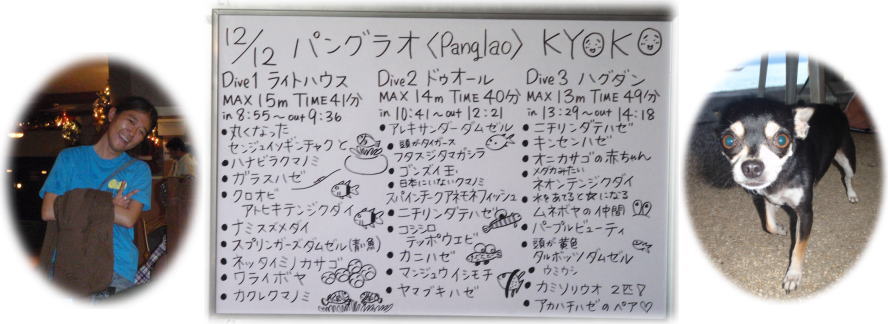 12/12 パングラオ〈Panglao〉 KYOKO
Dive1 ライトハウス
MAX 15m TIME 41分
in 8:55～out 9:36
・丸くなった
センジュイソギンチャクと
・ハナビラクマノミ
・ガラスハゼ
・クロオビ
アトヒキテンジクダイ
・ナミスズメダイ
・スプリンガーズダムゼル(青い魚)
・ネッタイミノカサゴ
・ワライボヤ
・カクレクマノミ
Dive2 ドゥオール
MAX 14m TIME 40分
in 10:41～out 12:21
・アレキサンダーダムゼル
・頭がタイガース
フタスジタマガシラ
・ゴンズイ玉
・日本にいないクマノミ
スパインチークアネモネフィッシュ
・ニチリンダテハゼ
・コシジロ
テッポウエビ
・カニハゼ
・マンジュウイシモチ
・ヤマブキハゼ
Dive3 ハグダン
MAX 13m TIME 49分
in 13:29～out 14:18
・ニチリンダテハゼ
・キンセンハゼ
・オニカサゴの赤ちゃん
・メダカみたい
ネオンテンジクダイ
・水をあてると☆になる
ムネボヤの仲間
・パープルビューティ
・頭が黄色
タルボッツダムゼル
・ウミウシ
・カミソリウオ 2匹▽
・アカハチハゼのペア♡